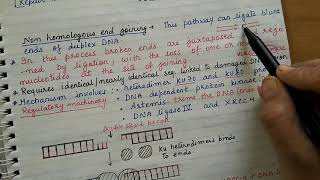 Repair
Non homologous end joining :- This pathway can ligate blunt
ends of duplex DNA
In this process broken ends are juxtaposed
med by ligation, with the loss of one or mo
nucleotides at the site of joining
Requires identical nearly identical seq linked to damaged DNA
Mechanism involves :- heterodimer KU70 and KU80
Regulatory machinery DNA dependent protein kinase
Artemis trims the DNA ends
DNA ligase IV and XRCC4
Double strand break
Ku heterodimers binds
to ends.
DNA